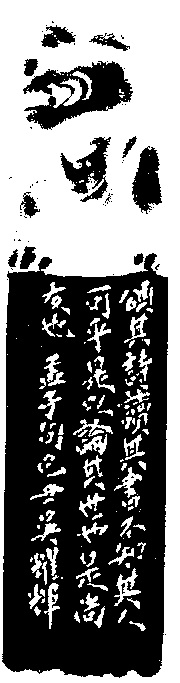 頌其詩讀其書不知其人
可乎是以論其世也是尚
友也 孟子句己丑吳耀輝